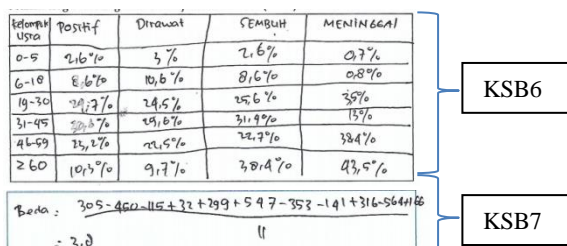 Kelompok Usia Positif Dirawat SEMBUH MENINGGAL
0-5 2,6% 3% 2,6% 0,7%
6-18 8,6% 10,6% 8,6% 0,8%
19-30 24,5% 25,6% 35%
31-45 29,6% 31,4% 13%
46-59 23,2% 22,5% 22,7% 384%
≥60 10,3% 9,7% 38,4% 43,5%
KSB6
Beda : 305-460-115+32+299+547-353-141+316-564+166
11
: 3,8
KSB7